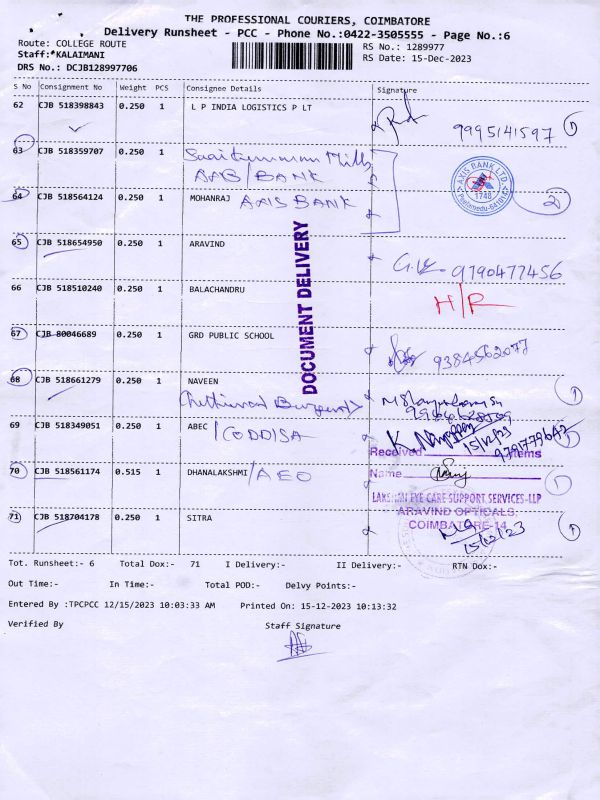 THE PROFESSIONAL COURIERS, COIMBATORE
Delivery Runsheet - PCC - Phone No.:0422-3505555 - Page No.:6
Route: COLLEGE ROUTE RS No.: 1289977
Staff:*KALAIMANI RS Date: 15-Dec-2023
DRS No.: DCJB128997706
S No Consignment No Weight PCS Consignee Details Signature
62 CJB 518398843 0.250 1 L P INDIA LOGISTICS P LT
9995141597 1
63 CJB 518359707 0.250 1 Mills
AAB/BANK
AXIS BANK LTD
1748
64 CJB 518564124 0.250 1 MOHANRAJ AXIS BANK 2
65 CJB 518654950 0.250 1 ARAVIND
9790477456
66 CJB 518510240 0.250 1 BALACHANDRU
H/R
DOCUMENT DELIVERY
67 CJB 80046689 0.250 1 GRD PUBLIC SCHOOL
9384562077
68 CJB 518661279 0.250 1 NAVEEN 1
69 CJB 518349051 0.250 1 ABEC /CODDISA
15/12/23
Received Items
70 CJB 518561174 0.515 1 DHANALAKSHMI /AEO 1
Name
LAKSHMI EYE CARE SUPPORT SERVICES-LLP
ARAVIND OPTICALS
COIMBATORE-14
71 CJB 518704178 0.250 1 SITRA 1
15/12/23
Tot. Runsheet:- 6 Total Dox:- 71 I Delivery:- II Delivery:- RTN Dox:-
Out Time:- In Time:- Total POD:- Delvy Points:-
Entered By :TPCPCC 12/15/2023 10:03:33 AM Printed On: 15-12-2023 10:13:32
Verified By Staff Signature